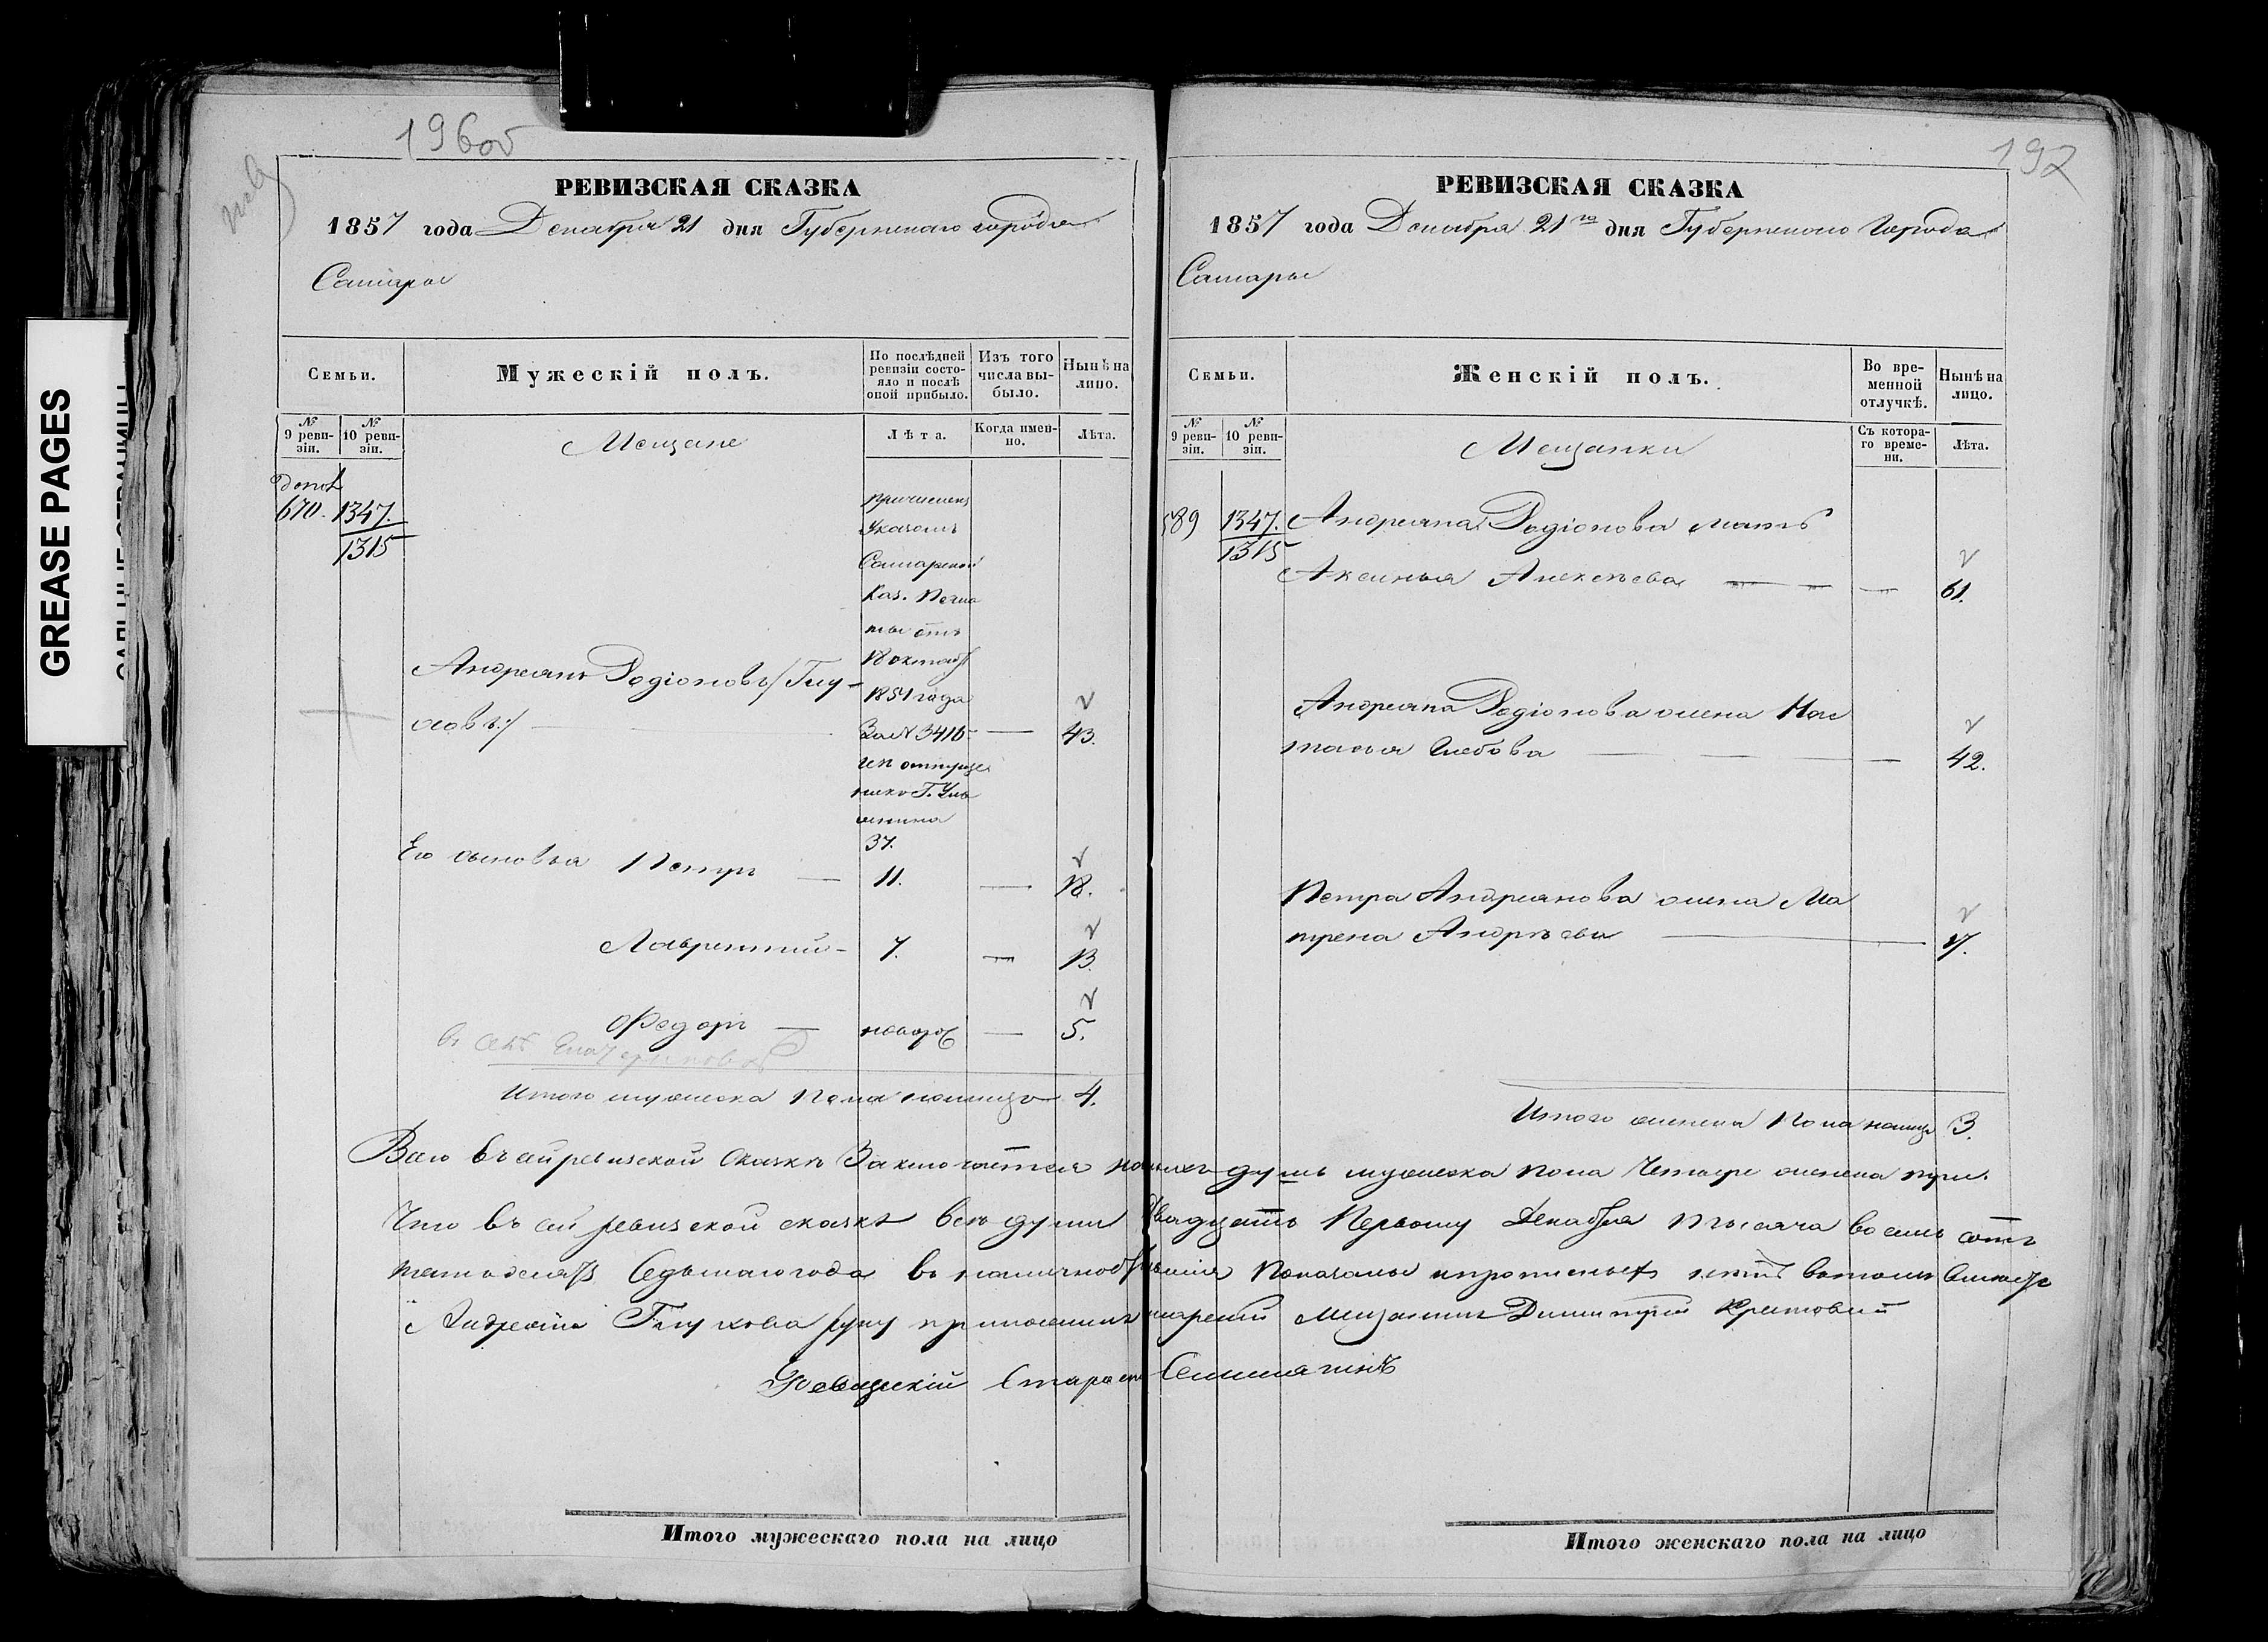 GREASE PAGES
196об
РЕВИЗСКАЯ СКАЗКА
1857 года Декабря 21 дня Губернскаго города
Самары
Семьи.
Мужескій полъ.
По послѣдней ревизіи состояло и послѣ оной прибыло.
Изъ того числа выбыло.
Нынѣ на лицо.
№ 9 ревизіи.
№ 10 ревизіи.
Мещане
Лѣта.
Когда именно.
Лѣта.
670. 1347.
1315
причислен
Указомъ
Самарской
Каз. Пала
ты отъ
18 октяб
Андреянъ Родіоновъ /Глу-
1854 года
ховъ:/ За № 3416 — 43.
изъ отпуще
37.
Его сыновья Петръ — 11. — 18.
Лаврентий — 7. — 13.
Федоръ — новорож — 5.
Итого мужеска пола налицо 4.
197
РЕВИЗСКАЯ СКАЗКА
1857 года Декабря 21го дня Губернскаго Города
Самары
Семьи.
Женскій полъ.
Во временной отлучкѣ.
Нынѣ на лицо.
№ 9 ревизіи.
№ 10 ревизіи.
Мещанки
Съ котораго времени.
Лѣта.
589 1347. Андреяна Родіонова мать
1315
Аксинья Алексѣева — — 61.
Андреяна Родіонова жена Нас
тасья Глебова — — 42.
Петра Андреянова жена Ма
трена Андрѣева — 17.
Итого женска пола налицо 3.
Всего въ сей ревизской сказкѣ Заключается наличныхъ душъ мужеска пола Четыре женска три.
Что въ сей ревизской сказкѣ всѣ души двадцать Первому Декабря тысяча восемь сотъ
пятьдесятъ Седьмаго года въ наличности показаны и прописныхъ нѣтъ въ томъ вместо
Андреяна Глухова руку приложилъ Самарский Мещанинъ Димитрий
Ревизскій Староста
Итого мужескаго пола на лицо
Итого женскаго пола на лицо